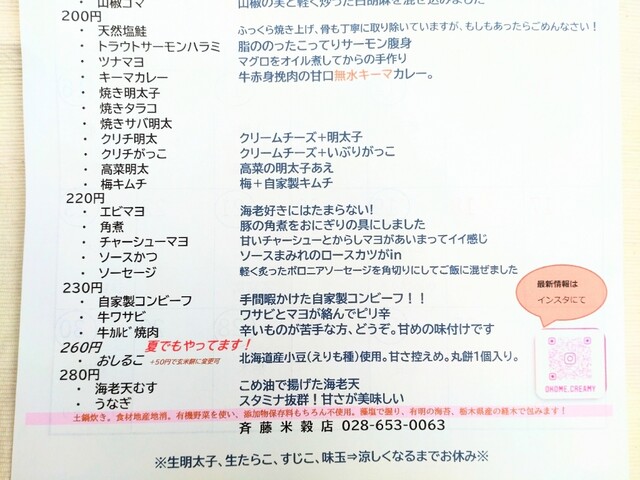 ・ 山椒ゴマ 山椒の実と軽く炒った白胡麻を混ぜ込みました
200円
・ 天然塩鮭 ふっくら焼き上げ、骨も丁寧に取り除いていますが、もしもあったらごめんなさい！
・ トラウトサーモンハラミ 脂ののったこってりサーモン腹身
・ ツナマヨ マグロをオイル煮してからの手作り
・ キーマカレー 牛赤身挽肉の甘口無水キーマカレー。
・ 焼き明太子
・ 焼きタラコ
・ 焼きサバ明太
・ クリチ明太 クリームチーズ＋明太子
・ クリチがっこ クリームチーズ＋いぶりがっこ
・ 高菜明太 高菜の明太子あえ
・ 梅キムチ 梅＋自家製キムチ
220円
・ エビマヨ 海老好きにはたまらない!
・ 角煮 豚の角煮をおにぎりの具にしました
・ チャーシューマヨ 甘いチャーシューとからしマヨがあいまってイイ感じ
・ ソースかつ ソースまみれのロースカツがin
・ ソーセージ 軽く炙ったボロニアソーセージを角切りにしてご飯に混ぜました
230円
・ 自家製コンビーフ 手間暇かけた自家製コンビーフ！！
・ 牛ワサビ ワサビとマヨが絡んでピリ辛
・ 牛ｶﾙﾋﾞ焼肉 辛いものが苦手な方、どうぞ。甘めの味付けです
最新情報は
インスタにて
OKOME.CREAMY
260円 夏でもやってます！
・ おしるこ +50円で玄米餅に変更可 北海道産小豆(えりも種）使用。甘さ控えめ。丸餅1個入り。
280円
・ 海老天むす こめ油で揚げた海老天
・ うなぎ スタミナ抜群！甘さが美味しい
土鍋炊き。食材地産地消。有機野菜を使い、添加物保存料もちろん不使用。藻塩で握り、有明の海苔、栃木県産の経木で包みます！
斉藤米穀店 028-653-0063
※生明太子、生たらこ、すじこ、味玉⇒涼しくなるまでお休み※